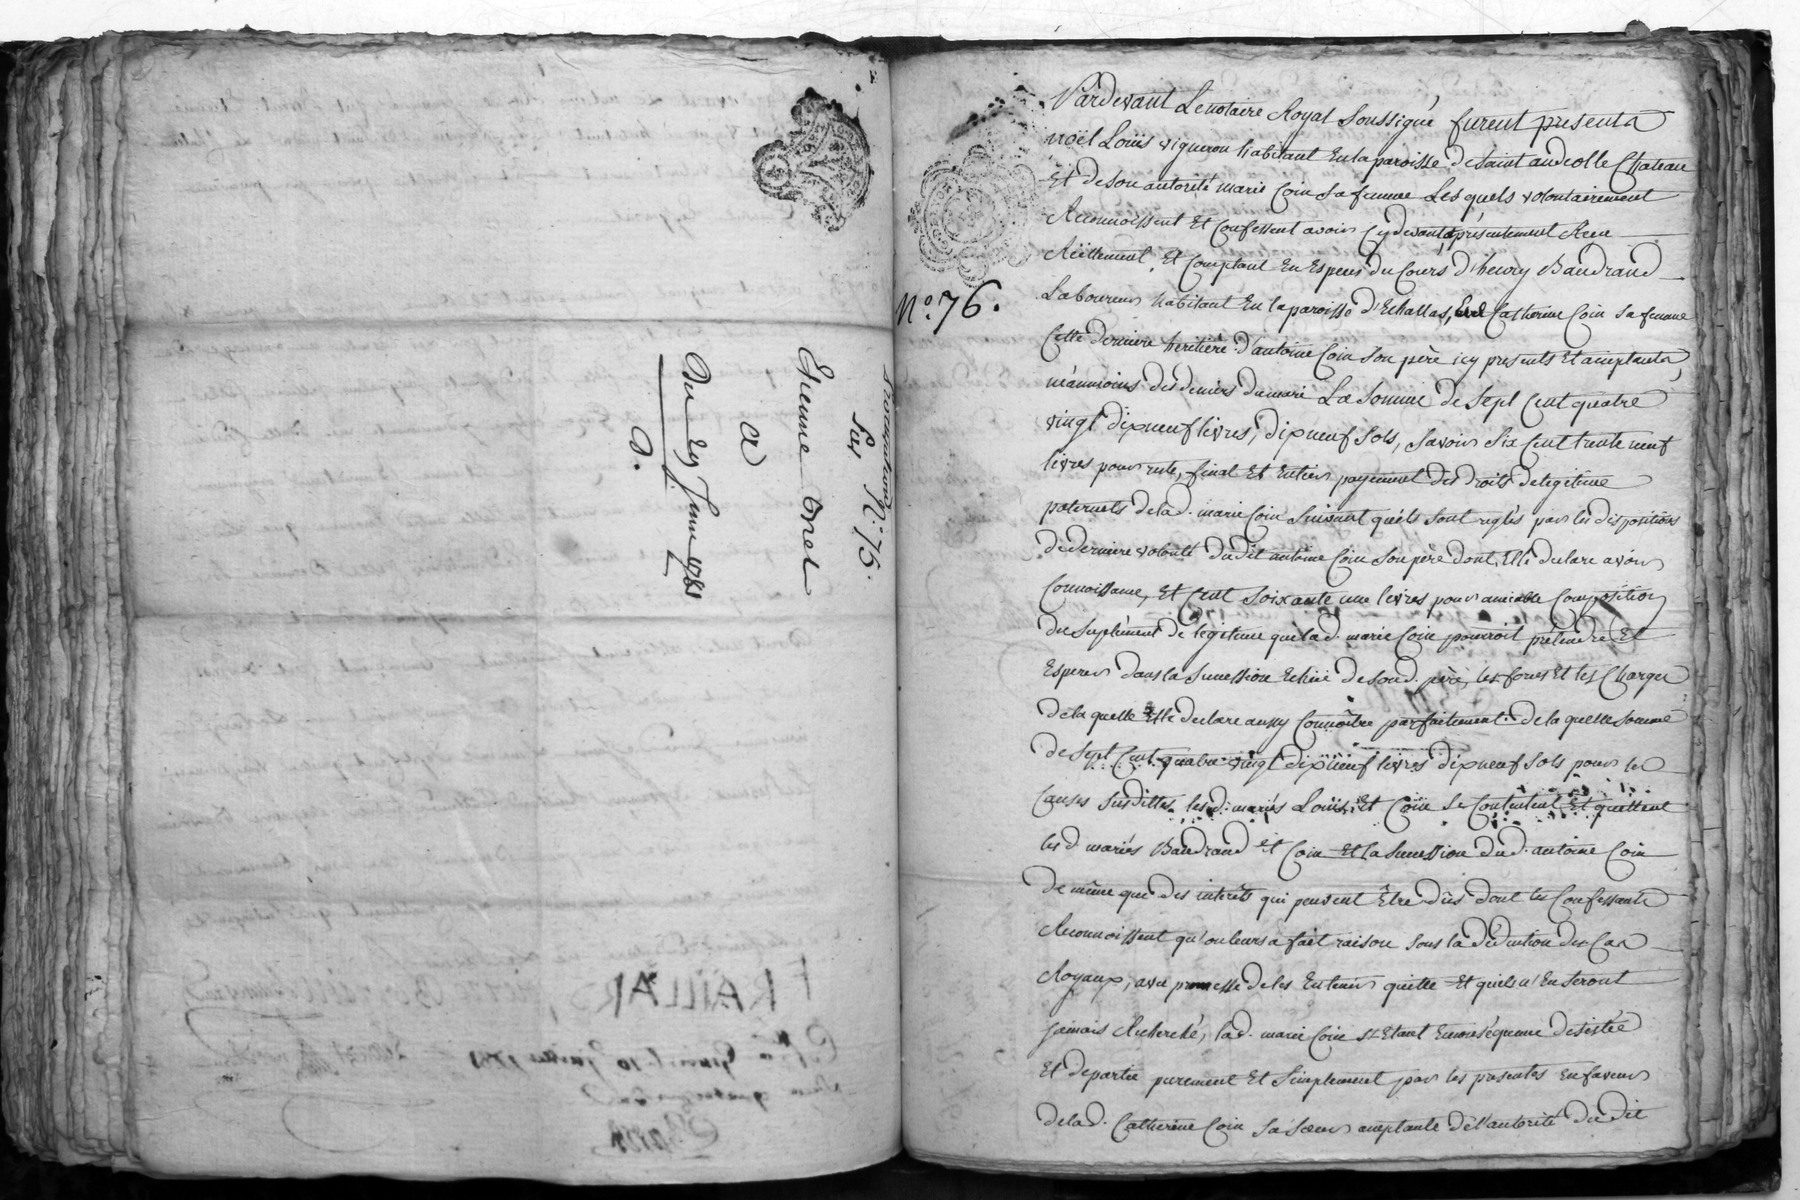 Procuration
Sur N.º 75.
Etienne Brel
a
Du 29 Juin 1781
D.
N.º 76.
Pardevant Le notaire Royal Soussigné furent presents
noël Loüis vigneron habitant En la paroisse de Saint andeolle Chateau
Et de Son autorité marie Coin Sa femme Lesquels volontairement
Reconnoissent Et Confessent avoir Cydevant et présentement Receu
Réëllement, Et Comptant En Especes du Cours d'henry Baudrand
Laboureur habitant En la paroisse d'Echallas, Et de Catherine Coin Sa femme
Cette derniere heritière d'antoine Coin Son père icy presents Et acceptants,
néanmoins des deniers du mari La Somme de Sept Cent quatre
vingt dixneuf livres, dixneuf Sols, Savoir Six Cent trente neuf
livres pour reste, final Et Entier payement des droits de legitime
paternels de lad. marie Coin Suivant quéls Sont reglés par les dispositions
de derniere volonté dudit antoine Coin Son père dont Elle declare avoir
Connoissance, Et Cent Soixante une livres pour amiable Composition
du Suplément de legitime que lad. marie Coin pourroit prétendre Et
Esperer dans la Succession Echüe de Sond. père, les forces Et les Charges
de la quelle Elle declare aussy Connoître parfaitement. de la quelle Somme
de Sept Cent quatre vingt dixneuf livres dixneuf Sols pour les
Causes Susdittes les d. mariés Loüis Et Coin Se Contentent Et quittent
les d. mariés Baudrand Et Coin Et la Succession dud. antoine Coin
de même que des intérêts qui peuvent Être dûs dont les Confessants
Reconnoissent qu'on leurs a fait raison Sous la déduction des Cas
Royaux, avec promesse de les En tenir quitte Et quils n'En Seront
Jamais Recherché, lad. marie Coin S'Etant En conséquence desistée
Et departie purement Et Simplement par les presentes En faveur
de lad. Catherine Coin Sa Sœur acceptante de l'autorité dudit